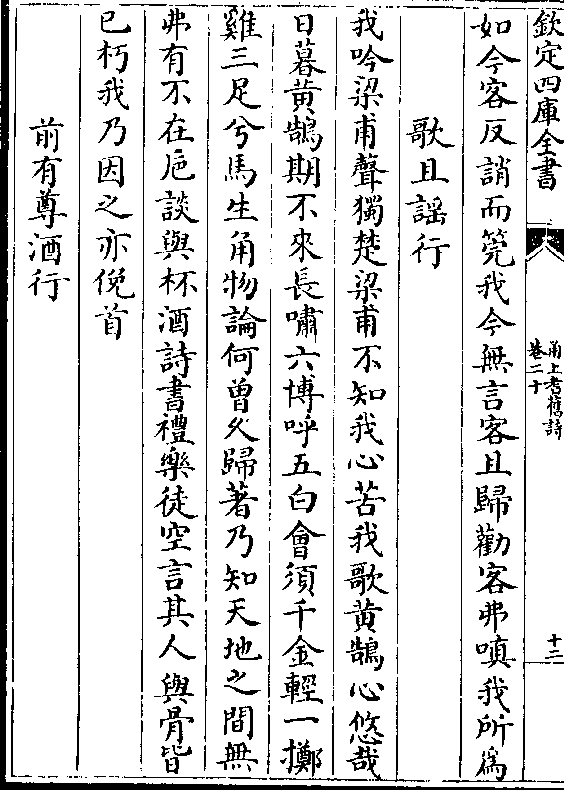 欽定四庫全書
甬上耆舊詩
卷二十
十三
如今客反誚而筦我今無言客且歸勸客弗嗔我所爲
歌且謡行
我吟梁甫聲獨楚梁甫不知我心苦我歌黄鵠心悠哉
日暮黄鵠期不來長嘯六博呼五白會須千金輕一擲
雞三足兮馬生角物論何曾乆歸著乃知天地之間無
弗有不在巵談與杯酒詩書禮樂徒空言其人與骨皆
已朽我乃因之亦俛首
前有尊酒行